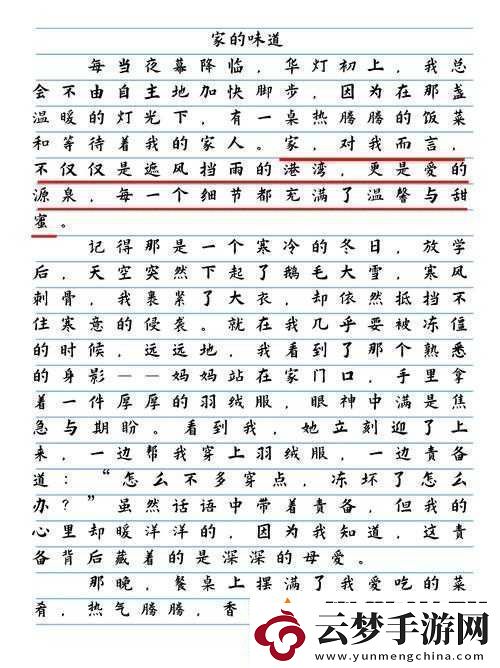 家的味道
每当夜幕降临，华灯初上，我总
会不由自主地加快脚步，因为在那盏
温暖的灯光下，有一桌热腾腾的饭菜
和等待着我的家人。家，对我而言，
不仅仅是遮风挡雨的港湾，更是爱的
源泉，每一个细节都充满了温馨与甜
蜜。
记得那是一个寒冷的冬日，放学
后，天空突然下起了鹅毛大雪，寒风
刺骨，我裹紧了大衣，却依然抵挡不
住寒意的侵袭。就在我几乎要被冻僵
的时候，远远地，我看到了那个熟悉
的身影——妈妈站在家门口，手里拿
着一件厚厚的羽绒服，眼神中满是焦
急与期盼。看到我，她立刻迎了上
来，一边帮我穿上羽绒服，一边责备
道：“怎么不多穿点，冻坏了怎么
办？”虽然话语中带着责备，但我的
心里却暖洋洋的，因为我知道，这责
备背后藏着的是深深的母爱。
那晚，餐桌上摆满了我爱吃的菜
肴，热气腾腾，香
云梦手游网
www.yunmengchina.com